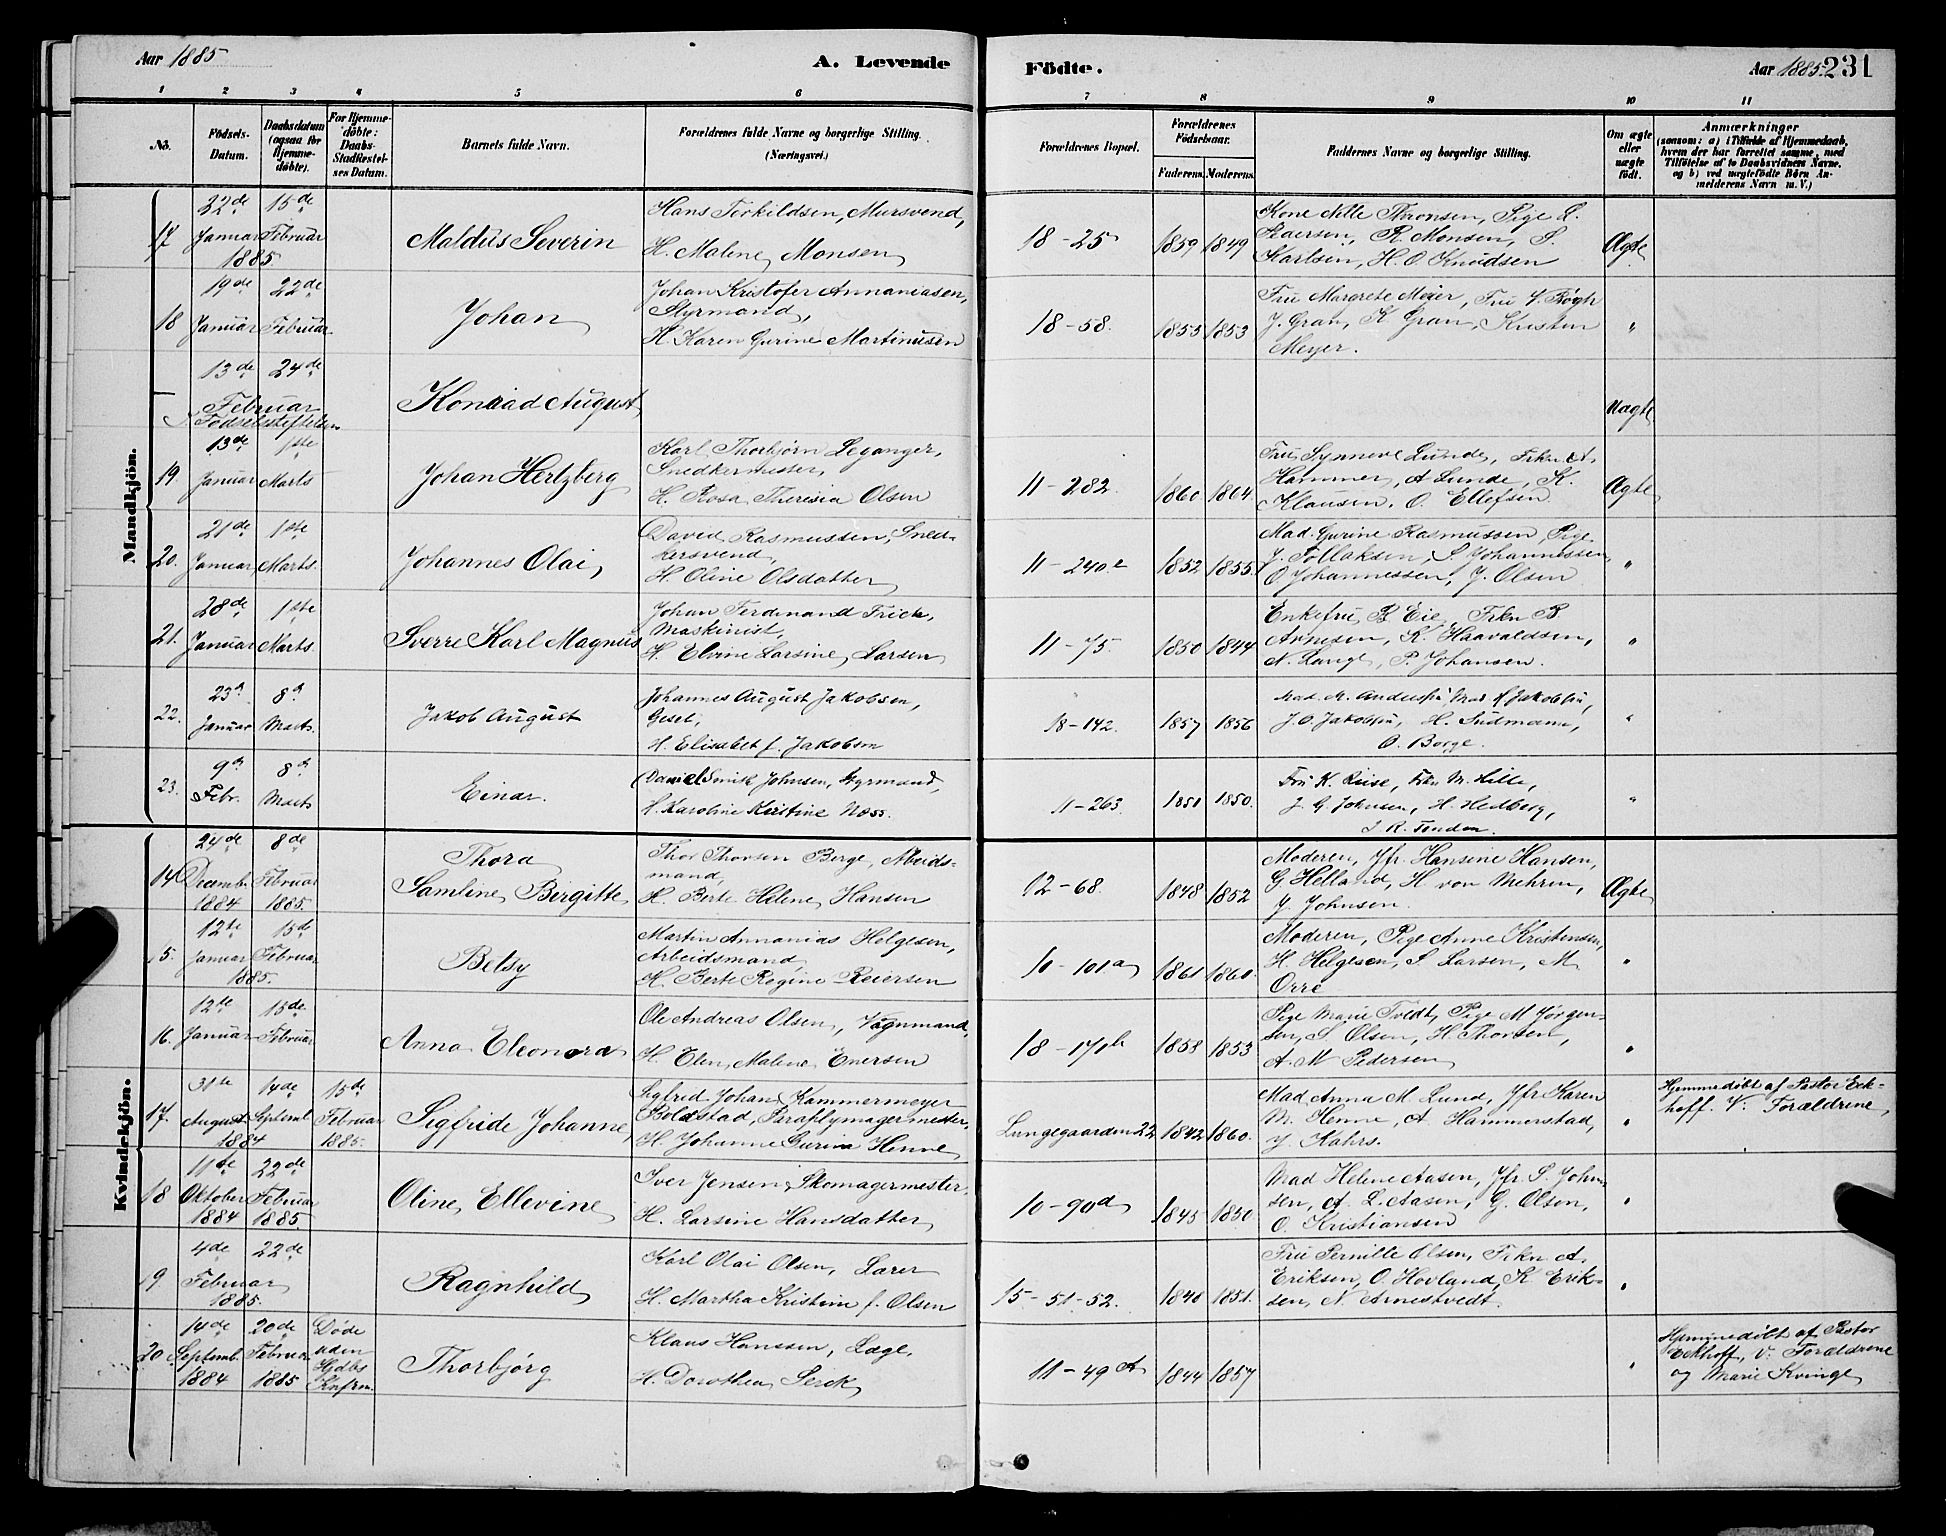 Aar 1885
A. Levende
Födte.
Aar 1885. 231
1 2 3 4 5 6 7 8 9 10 11
No.
Födsels-
Datum.
Daabsdatum
(ogsaa for
Hjemme-
döbte).
For Hjemme-
döbte:
Daabs-
Stadfæstel-
ses Datum.
Barnets fulde Navn.
Forældrenes fulde Navne og borgerlige Stilling.
(Næringsvei.)
Forældrenes Bopæl.
Forældrenes
Födselsaar.
Faderens. Moderens.
Faddernes Navne og borgerlige Stilling.
Om ægte
eller
uægte
födt.
Anmærkninger
(saasom: a) i Tilfælde af Hjemmedaab,
hvem der har forrettet samme, med
Tilföielse af to Daabsvidners Navne.
og b) ved uægtefödte Börn An-
melderens Navn m. V.)
Mandkjön.
17
22de
Januar
1885.
15de
Februar
Maldus Severin
Hans Torkildsen, Mursvend,
H. Malene Monsen
18-25
1859
1849
Kone Nille Thronsen, Pige L.
Pedersen, R. Monsen, S.
Karlsen, H. O. Knudsen
Ægte
18
19de
Januar
22de
Februar.
Johan
Johan Kristofer Annaniasen,
Styrmand,
H. Karen Gurine Martinusen
18-58.
1855
1853
Fru Margrete Meier, Fru V. Krogh
J. Gran, K. Gran, Kristen
Meyer.
"
13de
24de
Februar
Fødselsstiftelsen
Konrad August
Uægte
19
13de
Januar
1ste
Marts
Johan Hertzberg
Karl Thorbjörn Leganger,
Snedkermester,
H. Rosa Theresia Olsen
11-282.
1860
1864
Fru Synneve Lunde, Frkn A.
Hammer, A Lunde, K.
Klausen, O. Ellefsen
Ægte
20.
21de
Januar
1ste
Marts.
Johannes Olai
David Rasmussen, Sned-
kersvend,
H. Oline Olsdatter
11-240a
1852
1855.
Mad. Gurine Rasmussen Pige
J. Tollaksen, S Johannessen,
O Johannessen, J. Olsen
"
21.
28de
Januar
1ste
Marts.
Sverre Karl Magnus
Johan Ferdinand Frick,
Maskinist,
H. Elvine Larsine Larsen
11-75.
1850
1844
Enkefru B Eie, Frkn B
Arnesen, K. Haavaldsen,
N. Lange, P. Johansen.
"
22.
23d
Januar
8d
Marts.
Jakob August
Johannes August Jakobsen,
Gesel,
H. Elisabet f. Jakobsen
18-142.
1857
1856
J. O. Jakobsen, H. Sudmann,
O. Borge.
"
23.
9d
Febr.
8d
Marts
Einar.
Daniel Smisk Johnsen, Styrmand,
H. Karoline Kristine Næss.
11-263
1851
1850.
Fru K. Riise, Frkn M. Hille,
J. G. Johnsen, H. Hedberg,
J. R. Tenden.
"
Kvindekjön.
14
24de
Decemb.
1884
8de
Februar
1885.
Thora
Samline Birgitte
Thor Thorsen Berge, Arbeids-
mand,
H. Berte Helene Hansen
12-68
1848
1852
Moderen, Jfr. Hansine Hansen,
G Helland, H. von Mehren,
J. Johnsen.
Ægte
15.
12te
Januar
1885.
15de
Februar
Betsy
Martin Annanias Helgesen,
Arbeidsmand,
H. Berte Regine Reiersen
10-101a
1861
1860.
Moderen, Pige Anne Kristensen,
H. Helgesen, S Larsen, M.
Orre
"
16.
12te
Januar
15de.
Februar
Anna Eleonora
Ole Andreas Olsen, Vognmand,
H. Elen Malene Enersen
18-171b
1858
1853
Pige Marie Tvedt, Pige M Jörgen-
sen, S. Olsen, H. Thorsen,
A. M. Pedersen
"
17.
31te
August
1884
14de
Septemb.
15de
Februar
1885.
Sigfride Johanne
Sigfrid Johan Kammermeyer
Boldstad, Paraplymagermester,
H. Johanne Gurine Henne
Lungegaarden 22
1842
1860.
Mad Anna M. Lund, Jfr Karen
M. Henne, A. Hammerstad,
J. Kahrs.
"
Hjemmedöbt af Pastor Eck-
hoff. V: Forældrene,
18
11te
Oktober
1884
22de
Februar
1885.
Oline Ellevine
Iver Jensen Skomagermester,
H. Larsine Hansdatter
10-90d
1845
1850
Mad Helene Aasen, Jfr. S. John-
sen, A. L. Aasen, G. Olsen,
O. Kristiansen
"
19
4de
Februar
1885.
22de
Ragnhild
Karl Olai Olsen, Lærer
H. Martha Kristine f. Olsen
15-51-52.
1848
1851.
Fru Pernille Olsen, Frkn A.
Eriksen, O. Hovland, K. Erik-
sen, N. Arnestvedt.
"
20
14de
Septemb.
1884
20de
Februar
1885
Døde
uden
Hjdbs
Knfrm.
Thorbjörg
Klaus Hanssen, Læge,
H. Dorothea Serck
11-49A
1844
1857
"
Hjemmedöbt af Pastor
Eckhoff, V: Forældrene
og Marie Kvinge